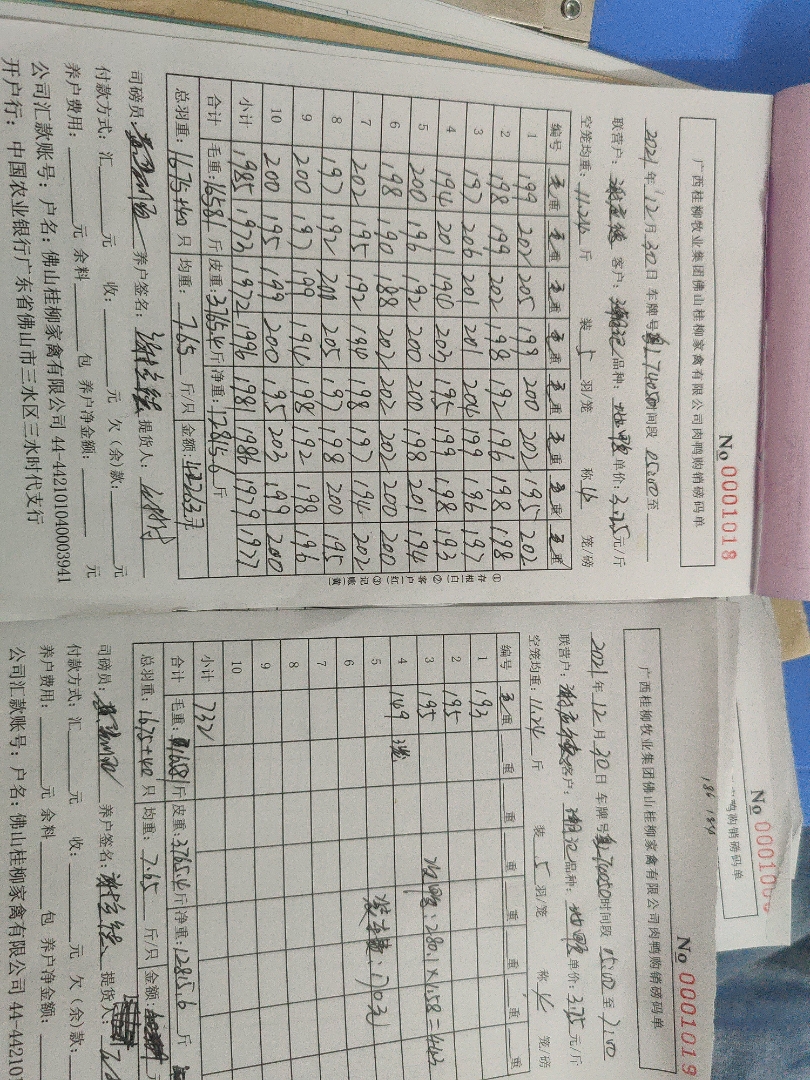 No 0001018
广西桂柳牧业集团佛山桂柳家禽有限公司肉鸭购销磅码单
2021年12月30日 车牌号 时间段 05:00至
联营户: 客户: 品种: 单价:3.75元/斤
空笼均重:11.24斤 装5羽/笼 称4笼/磅
编号 毛重 毛重 毛重 毛重 毛重 毛重 毛重 毛重
1 199 202 205 199 200 202 195 202
2 198 199 202 198 192 196 198 198
3 197 206 201 201 204 199 196 197
4 194 201 190 203 195 199 198 193
5 200 196 192 200 200 198 201 194
6 198 190 188 202 202 202 200 200
7 202 195 192 190 198 197 194 202
8 197 192 200 205 197 198 200 195
9 200 197 199 194 198 192 198 196
10 200 195 199 200 195 203 199 200
小计 1985 1973 1972 1996 1981 1986 1979 1977
合计 毛重:16581斤 皮重:3765.4斤 净重:12815.6斤
总羽重:1675+40只 均重:7.65斤/只 金额: 元
司磅员: 养户签名: 提货人:
付款方式:汇 元 收: 元 欠(余)款: 元
养户费用: 元 余料 包 养户净金额: 元
公司汇款账号:户名:佛山桂柳家禽有限公司 44-442101040003941
开户行:中国农业银行广东省佛山市三水区三水时代支行
①存根(白) ②客户(红) ③记账(黄)
No 0001019
广西桂柳牧业集团佛山桂柳家禽有限公司肉鸭购销磅码单
2021年12月30日 车牌号 时间段 05:00至7:00
联营户: 客户: 品种: 单价:3.75元/斤
空笼均重:11.24斤 装5羽/笼 称4笼/磅
编号 毛重 重 重 重 重 重 重 重
1 193
2 195
3 195
4 149 3笼
5
6
7
8
9
10
280.1×1.58=443
装车费:170元
小计 732
合计 毛重:16581斤 皮重:3765.4斤 净重:12815.6斤
总羽重:1675+40只 均重:7.65斤/只 金额:
司磅员: 养户签名: 提货人:
付款方式:汇 元 收: 元 欠(余)款:
养户费用: 元 余料 包 养户净金额:
公司汇款账号:户名:佛山桂柳家禽有限公司 44-44210
186 184
No 000100
鸭购销磅码单